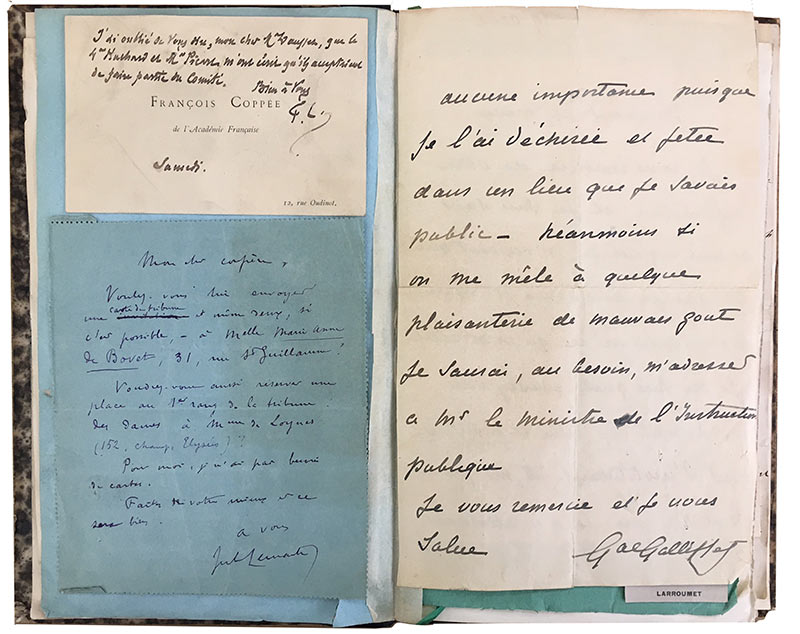 J'ai oublié de vous dire, mon cher Mr
, que le
Mr et Mr m'ont écrit qu'ils acceptaient
de faire partie du Comité.
Bien à vous
FRANÇOIS COPPÉE
F. C.
de l'Académie Française
Samedi.
12, rue Oudinot.
Mon cher confrère,
Voulez-vous bien envoyer
une carte de tribune et même deux, si
c'est possible, – à Melle Marie Anne
de Bovet, 31, rue St Guillaume?
Voudrez-vous aussi réserver une
place au 1er rang de la tribune
des dames à Mme de Loynes
(152, Champs Elysées)?
Pour moi, je n'ai pas besoin
de cartes.
Faites de votre mieux et ce
sera bien.
à vous
Jules Lemaitre
aucune importance puisque
je l'ai déchirée et jetée
dans un lieu que je savais
public – Néanmoins si
on me mêle à quelque
plaisanterie de mauvais gout
je saurai, au besoin, m'adresser
a Mr le Ministre de l'Instruction
publique
Je vous remercie et je vous
salue
Gal Galliffet
LARROUMET